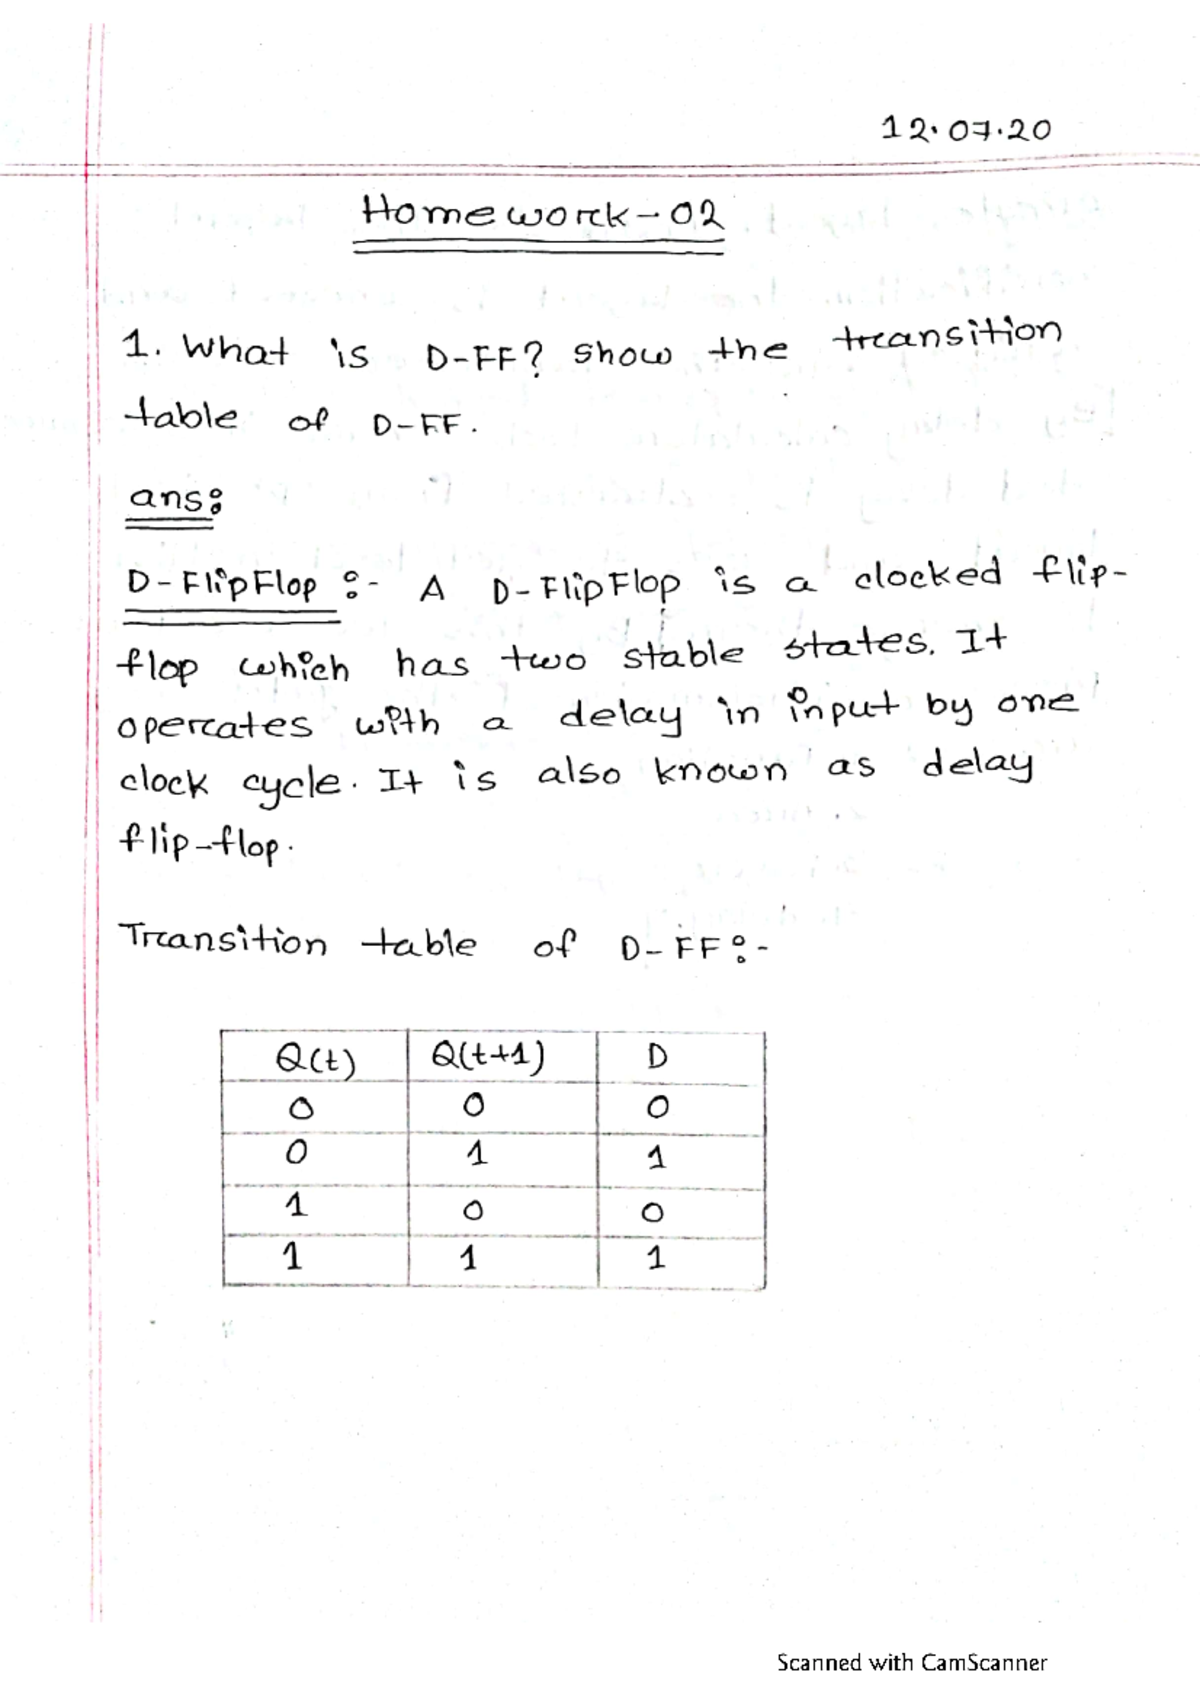 12.07.20
Homework-02
1. What is D-FF? show the transition
table of D-FF.
ans:
D-FlipFlop :- A D-FlipFlop is a clocked flip-
flop which has two stable states. It
operates with a delay in input by one
clock cycle. It is also known as delay
flip-flop.
Transition table of D-FF:-
Q(t) Q(t+1) D
0 0 0
0 1 1
1 0 0
1 1 1
Scanned with CamScanner